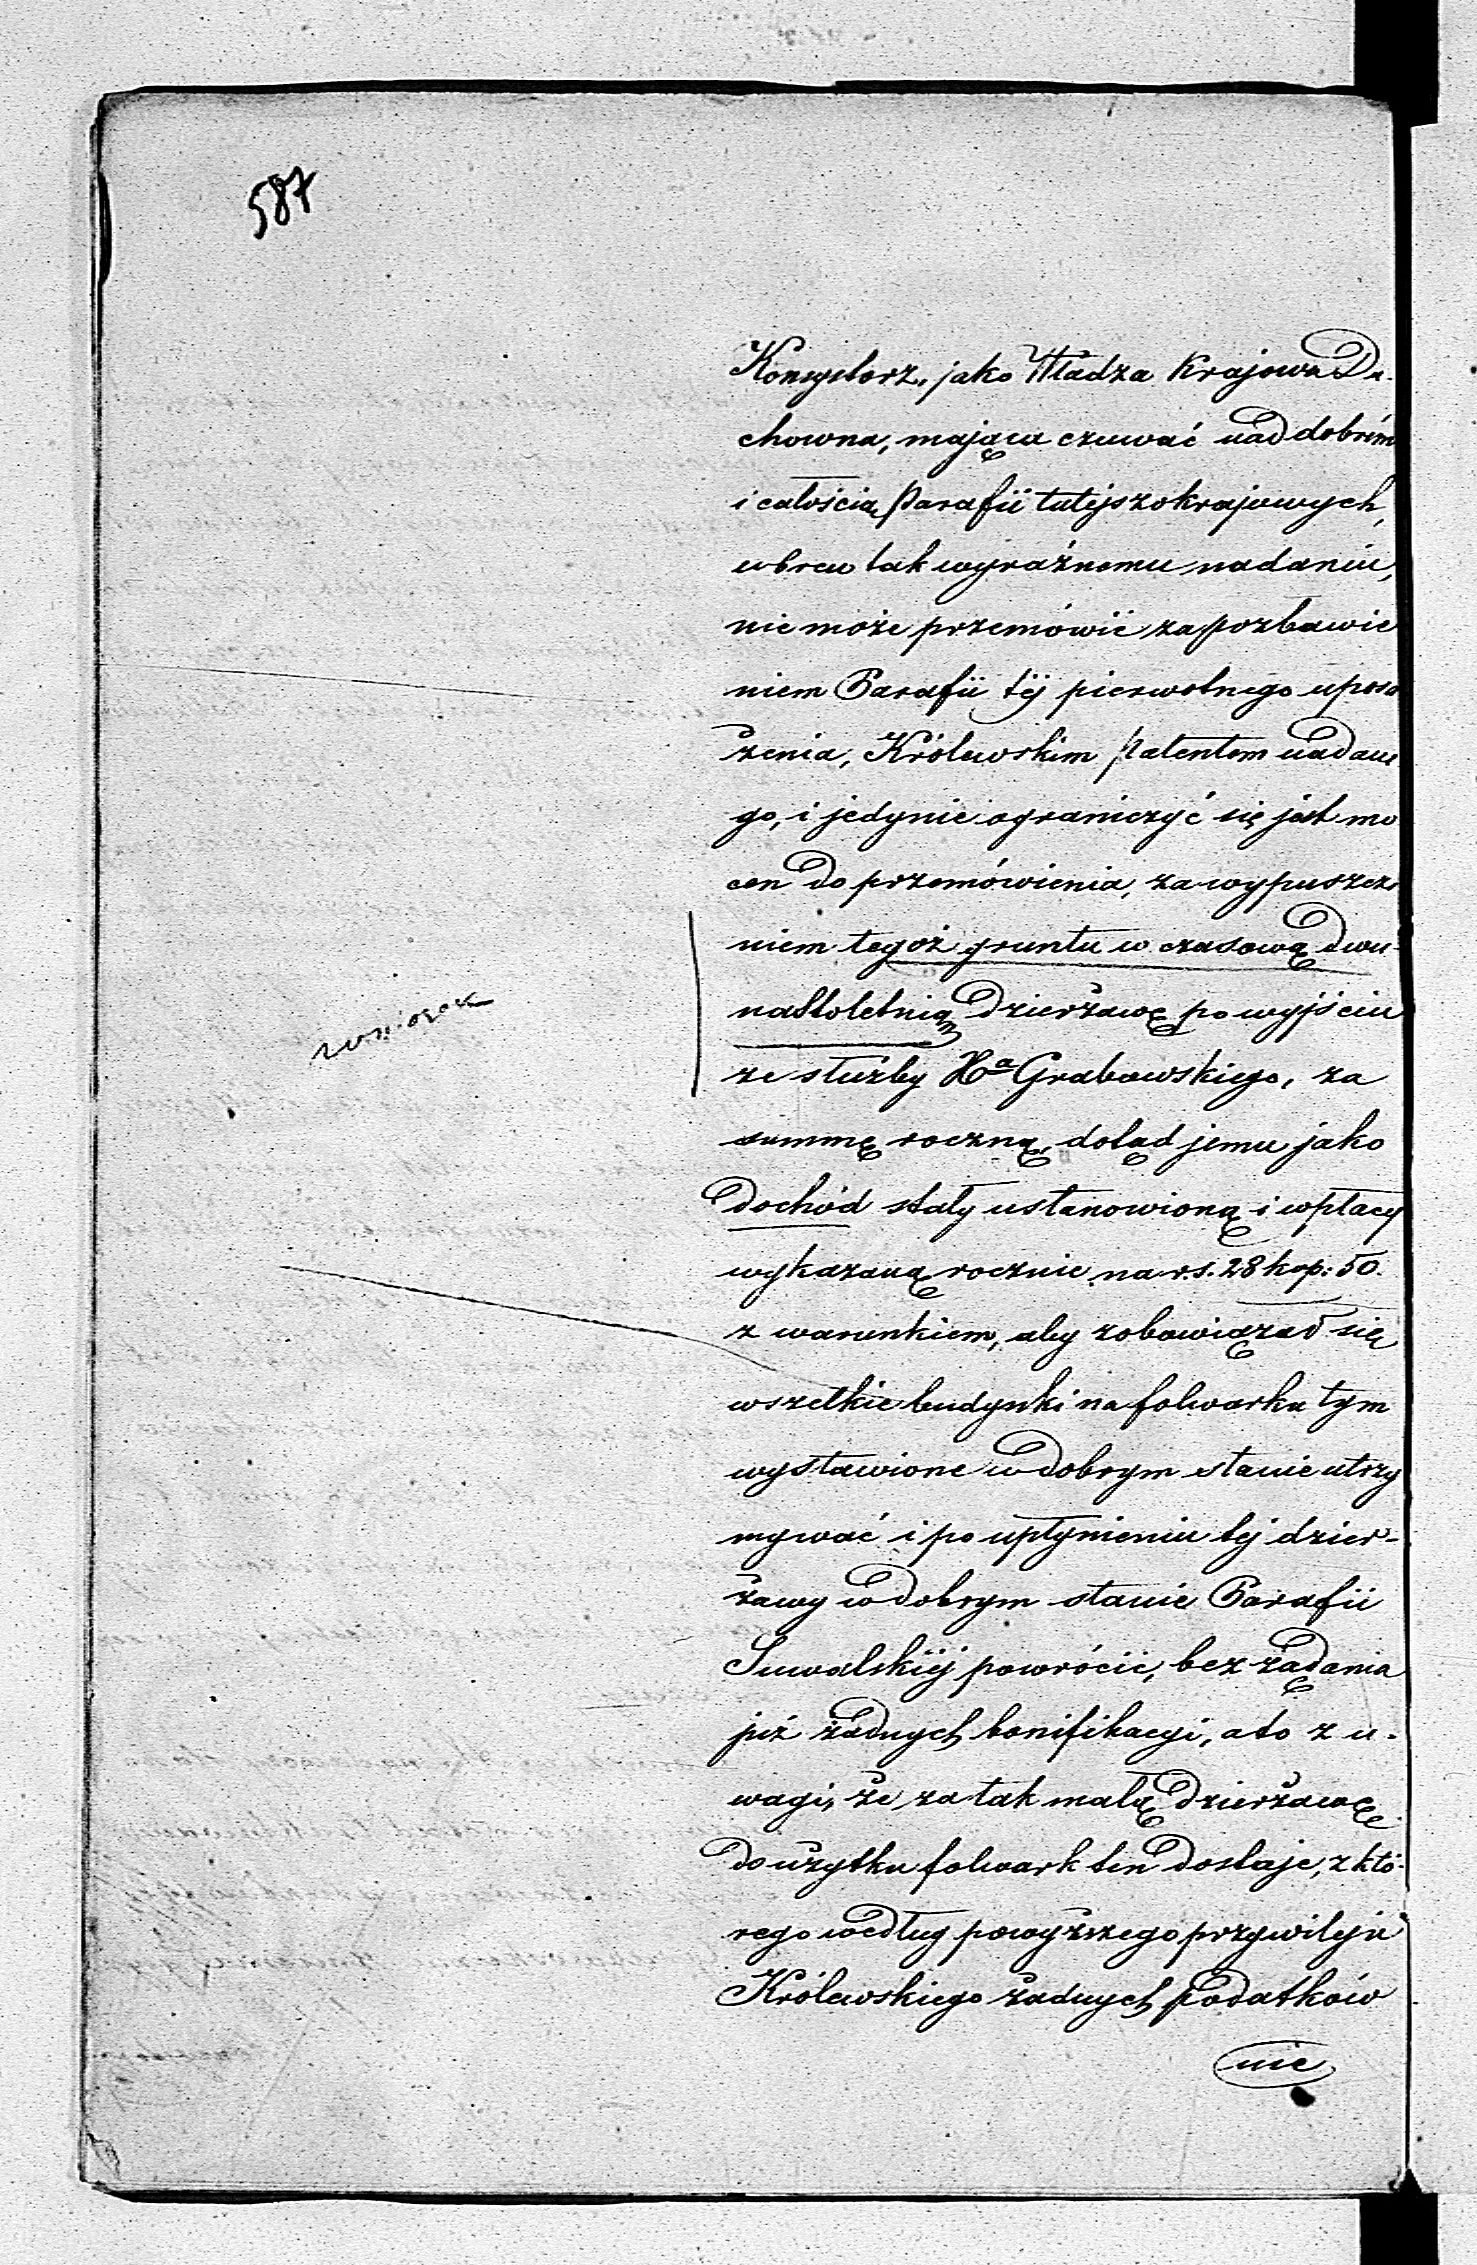 587
Konsystorz, jako Władza Krajowa Du-
chowna, mająca czuwać nad dobrém
i całością Parafii tutejszokrajowych,
wbrew tak wyraźnemu nadaniu,
nie może przemówić za pozbawie
niem Parafii téj pierwotnego uposa
żenia, Królewskim Patentem nadane
go, i jedynie ograniczyć się jest mo
cen do przemówienia, za wypuszcze
niem tegoż gruntu w czasową dwu-
nastoletnią dzierżawę po wyjściu
wniosek
ze służby Xa Grabowskiego, za
summę roczną, dotąd jemu jako
dochód stały ustanowioną i w płacy
wykazaną rocznie na r.s. 28 kop: 50.
z warunkiem, aby zobowiązał się
wszelkie budynki na folwarku tym
wystawione w dobrym stanie utrzy
mywać i po upłynieniu tej dzier-
żawy w dobrym stanie Parafii
Suwalskiéj powrócić, bez żądania
już żadnych bonifikacyi, a to z u-
wagi, że za tak małą dzierżawę
do użytku folwark ten dostaje, z któ-
rego według powyższego przywileju
Królewskiego żadnych podatków
nie